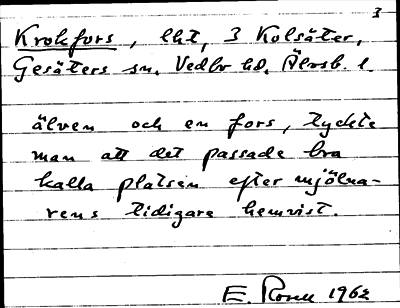 3
Krokfors, lht, 3 Kolsäter,
Gesäters sn. Vedbo hd. Älvsb. l.
älven och en fors, tyckte
man att det passade bra
kalla platsen efter mjölna-
rens tidigare hemvist.
E. Rosell 1962